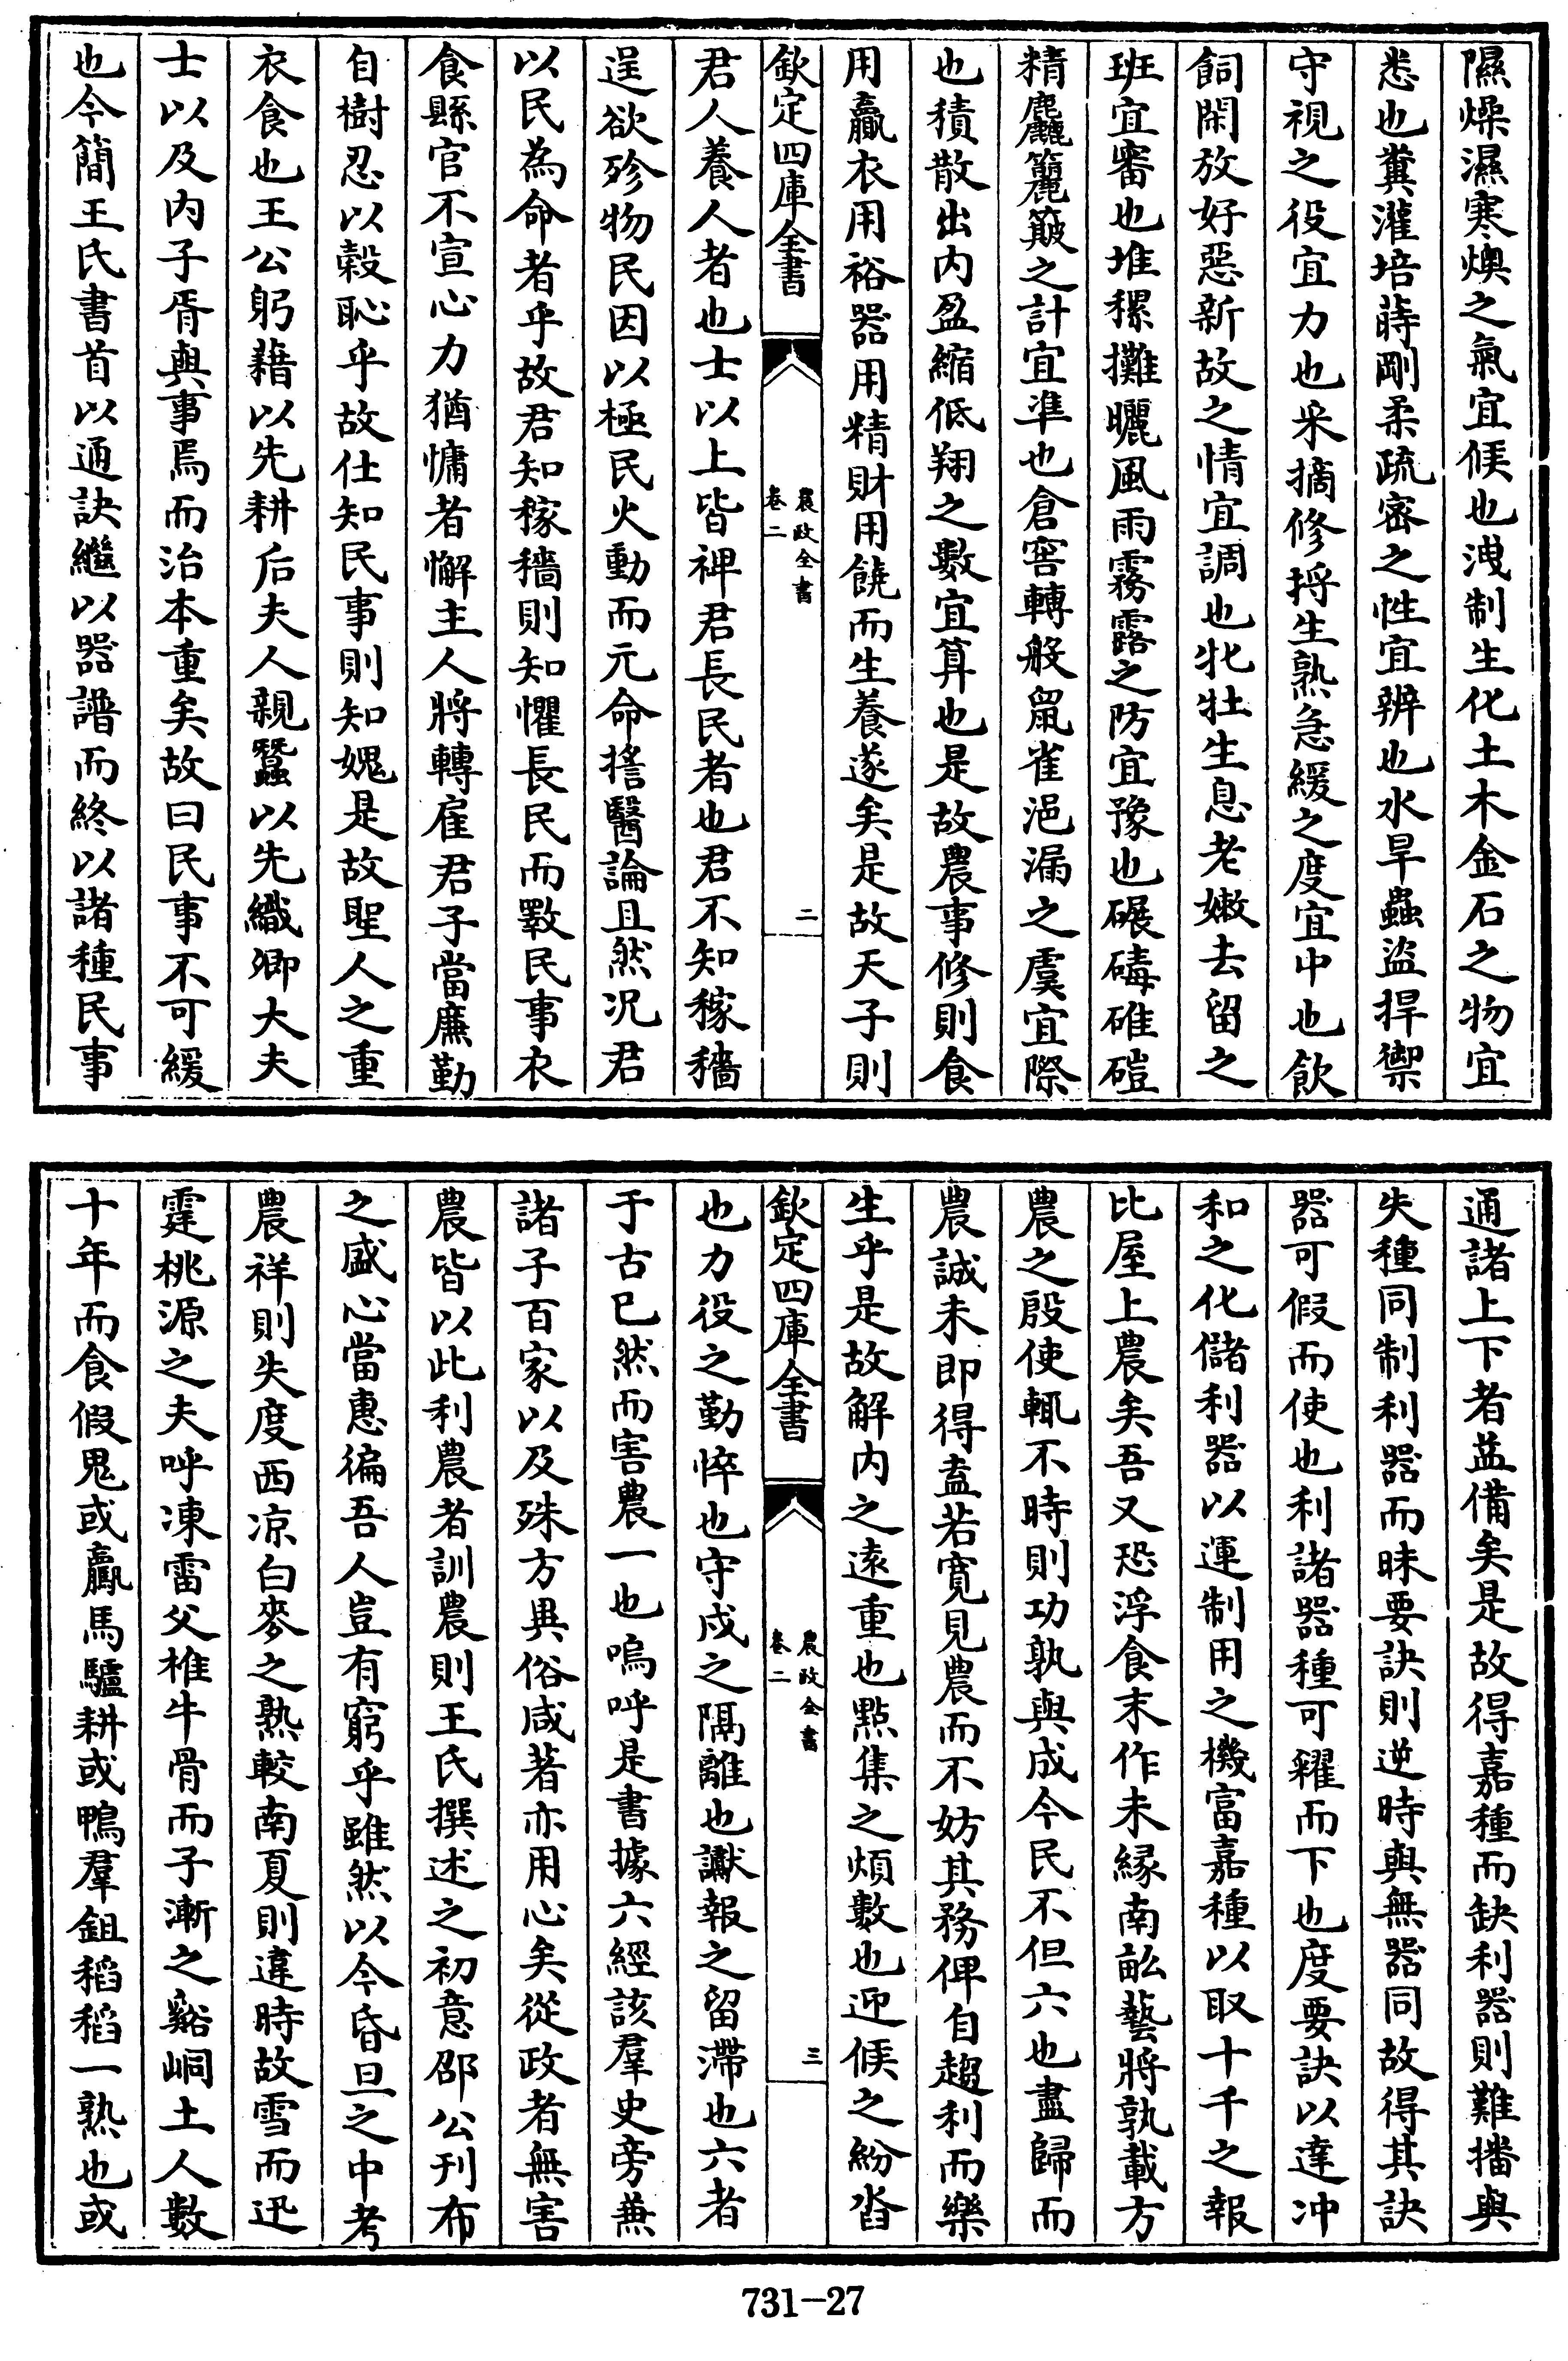 隰燥濕寒燠之氣宜候也洩制生化土木金石之物宜
悉也糞灌培蒔剛柔疏密之性宜辨也水旱蟲盜捍禦
守視之役宜力也采摘修捋生熟急緩之度宜中也飲
飼閑放好惡新故之情宜調也牝牡生息老嫩去留之
班宜審也堆穙攤曬風雨霧露之防宜豫也碾磚碓磑
精麤籭簸之計宜準也倉窖轉般䑕雀浥漏之虞宜際
也積散出内盈縮低翔之數宜算也是故農事修則食
用贏衣用裕器用精財用饒而生養遂矣是故天子則
欽定四庫全書
農政全書
卷二
二
君人養人者也士以上皆裨君長民者也君不知稼穡
逞欲殄物民因以極民火動而元命㨿醫論且然况君
以民為命者乎故君知稼穡則知懼長民而斁民事衣
食縣官不宣心力猶慵者懈主人將轉雇君子當廉勤
自樹忍以榖恥乎故仕知民事則知媿是故聖人之重
衣食也王公躬藉以先耕后夫人親蠶以先織卿大夫
士以及内子胥與事焉而治本重矣故曰民事不可緩
也今簡王氏書首以通訣繼以器譜而終以諸種民事
通諸上下者益備矣是故得嘉種而缺利器則難播與
失種同制利器而昧要訣則逆時與無器同故得其訣
器可假而使也利諸器種可糴而下也度要訣以達冲
和之化儲利器以運制用之機富嘉種以取十千之報
比屋上農矣吾又恐浮食末作未緣南畝藝將孰載方
農之殷使輒不時則功孰與成今民不但六也盡歸而
農誠未即得盍若寛見農而不妨其務俾自趨利而樂
生乎是故解内之遠重也點集之煩數也迎候之紛沓
欽定四庫全書
農政全書
卷二
三
也力役之勤悴也守戍之隔離也讞報之留滯也六者
于古已然而害農一也嗚呼是書據六經該羣史旁兼
諸子百家以及殊方異俗咸著亦用心矣從政者無害
農皆以此利農者訓農則王氏撰述之初意邵公刋布
之盛心當惠徧吾人豈有窮乎雖然以今昏旦之中考
農祥則失度西凉白麥之熟較南夏則違時故雪而迅
霆桃源之夫呼凍雷父椎牛骨而子漸之谿峒土人數
十年而食假鬼或羸馬驢耕或鴨羣鉏稻稻一熟也或
731—27